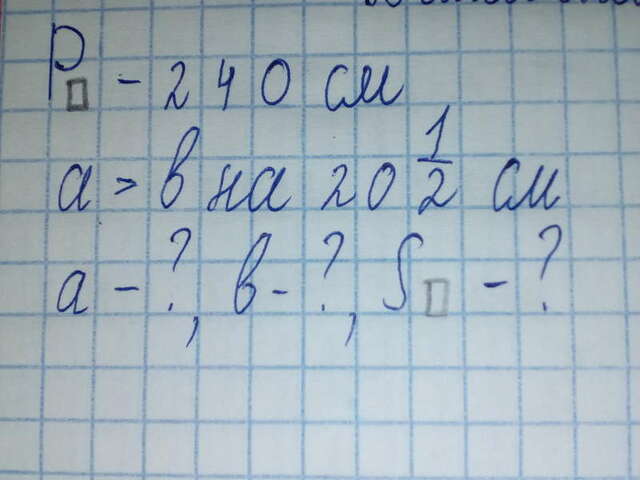 P▯ - 240 см
а > в на 20 1/2 см
а - ?, в - ?, S▯ - ?